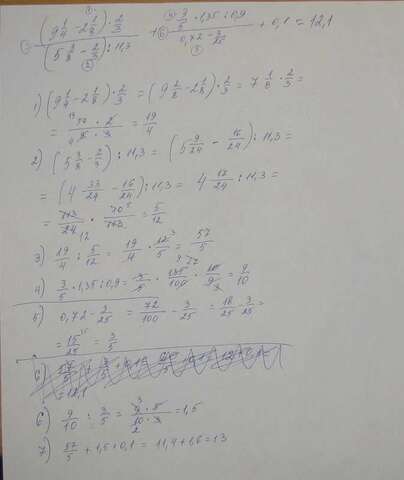 ((9 1/4 - 2 1/8) · 2/3) / ((5 3/8 - 2/3) : 11,3) + (3/5 · 1,35 : 0,9) / (0,72 - 3/25) + 0,1 = 12,1
1) (9 1/4 - 2 1/8) · 2/3 = (9 2/8 - 2 1/8) · 2/3 = 7 1/8 · 2/3 =
= 57 · 2 / 8 · 3 = 19/4
2) (5 3/8 - 2/3) : 11,3 = (5 9/24 - 16/24) : 11,3 =
= (4 33/24 - 16/24) : 11,3 = 4 17/24 : 11,3 =
= 113/24 · 10/113 = 5/12
3) 19/4 : 5/12 = 19/4 · 12/5 = 57/5
4) 3/5 · 1,35 : 0,9 = 3/5 · 135/100 · 10/9 = 9/10
5) 0,72 - 3/25 = 72/100 - 3/25 = 18/25 - 3/25 =
= 15/25 = 3/5
6) 9/10 : 3/5 = 9 · 5 / 10 · 3 = 1,5
7) 57/5 + 1,5 + 0,1 = 11,4 + 1,6 = 13